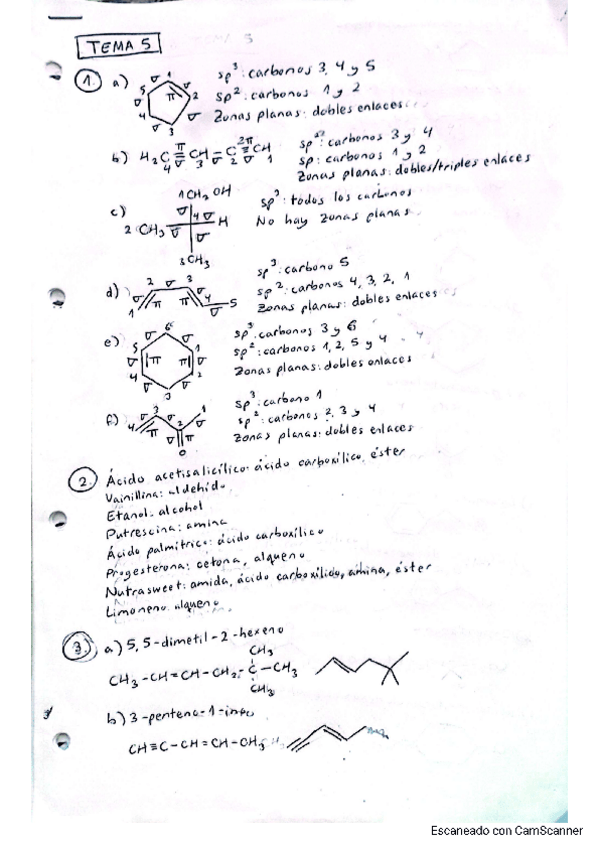 TEMA 5
1. a) sp³: carbonos 3, 4 y 5
sp²: carbonos 1 y 2
Zonas planas: dobles enlaces
b) H₂C=CH-C≡CH
sp²: carbonos 3 y 4
sp: carbonos 1 y 2
Zonas planas: dobles/triples enlaces
c) 1CH₂OH
2 CH₃ 4 H
3CH₃
sp³: todos los carbonos
No hay zonas planas
d) sp³: carbono 5
sp²: carbonos 4, 3, 2, 1
Zonas planas: dobles enlaces
e) sp³: carbonos 3 y 6
sp²: carbonos 1, 2, 5 y 4
Zonas planas: dobles enlaces
f) sp³: carbono 1
sp²: carbonos 2, 3 y 4
Zonas planas: dobles enlaces
2. Ácido acetisalicílico: ácido carboxílico, éster
Vainillina: aldehído
Etanol: alcohol
Putrescina: amina
Ácido palmítrico: ácido carboxílico
Progesterona: cetona, alqueno
Nutrasweet: amida, ácido carboxílido, amina, éster
Limoneno: alqueno
3. a) 5,5-dimetil-2-hexeno
CH₃
CH₃-CH=CH-CH₂-C-CH₃
CH₃
b) 3-penteno-1-ino
CH≡C-CH=CH-CH₃
Escaneado con CamScanner